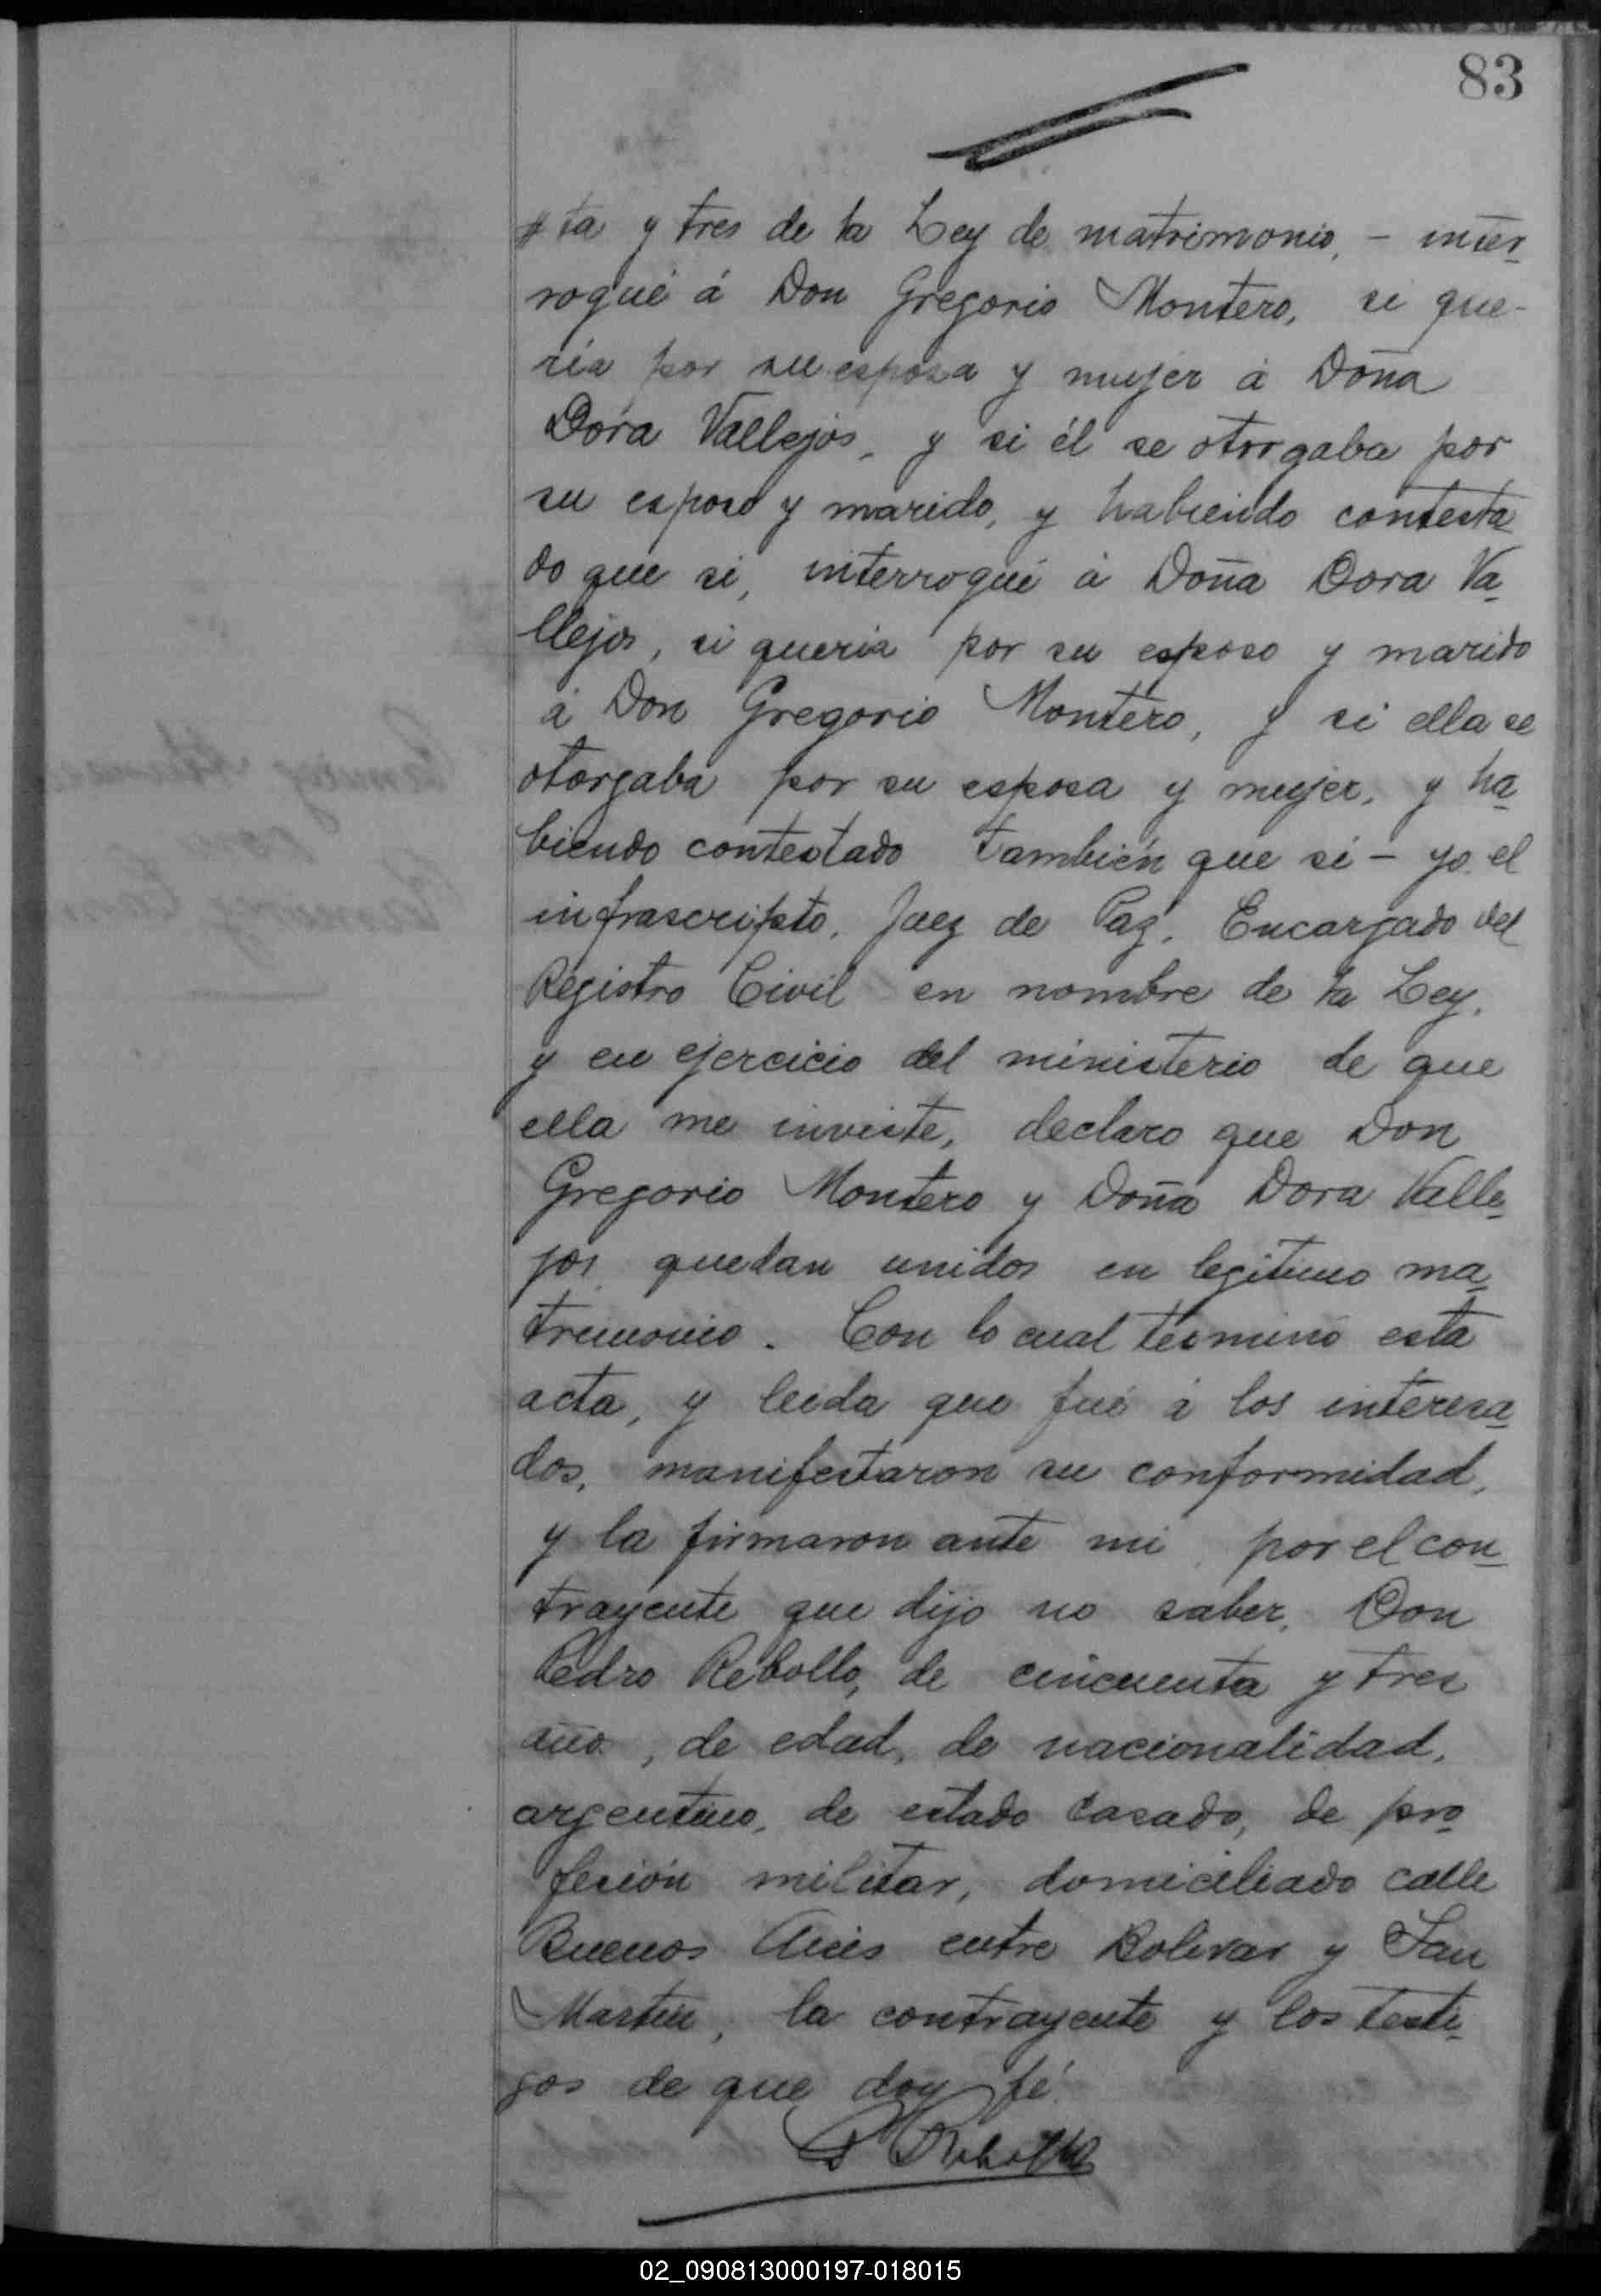 83
ta y tres de la Ley de matrimonio, - inter
rogué á Don Gregorio Montero, si que-
ria por su esposa y mujer á Doña
Dora Vallejos, y si él se otorgaba por
su esposo y marido, y habiendo contesta
do que si, interrogué á Doña Dora Va
llejos, si queria por su esposo y marido
á Don Gregorio Montero, y si ella se
otorgaba por su esposa y mujer, y ha
biendo contestado también que si - yo el
infrascripto, Juez de Paz, Encargado del
Registro Civil en nombre de la Ley,
y en ejercicio del ministerio de que
ella me inviste, declaro que Don
Gregorio Montero y Doña Dora Valle
jos quedan unidos en legitimo ma
trimonio. Con lo cual terminó esta
acta, y leida que fué á los interesa
dos, manifestaron su conformidad,
y la firmaron ante mi por el con
trayente que dijo no saber, Don
Pedro Rebollo, de cincuenta y tres
años, de edad, de nacionalidad,
argentino, de estado casado, de pro
fesión militar, domiciliado calle
Buenos Aires entre Bolivar y San
Martin, la contrayente y los testi
gos de que doy fé.
P Rebollo
02_090813000197-018015